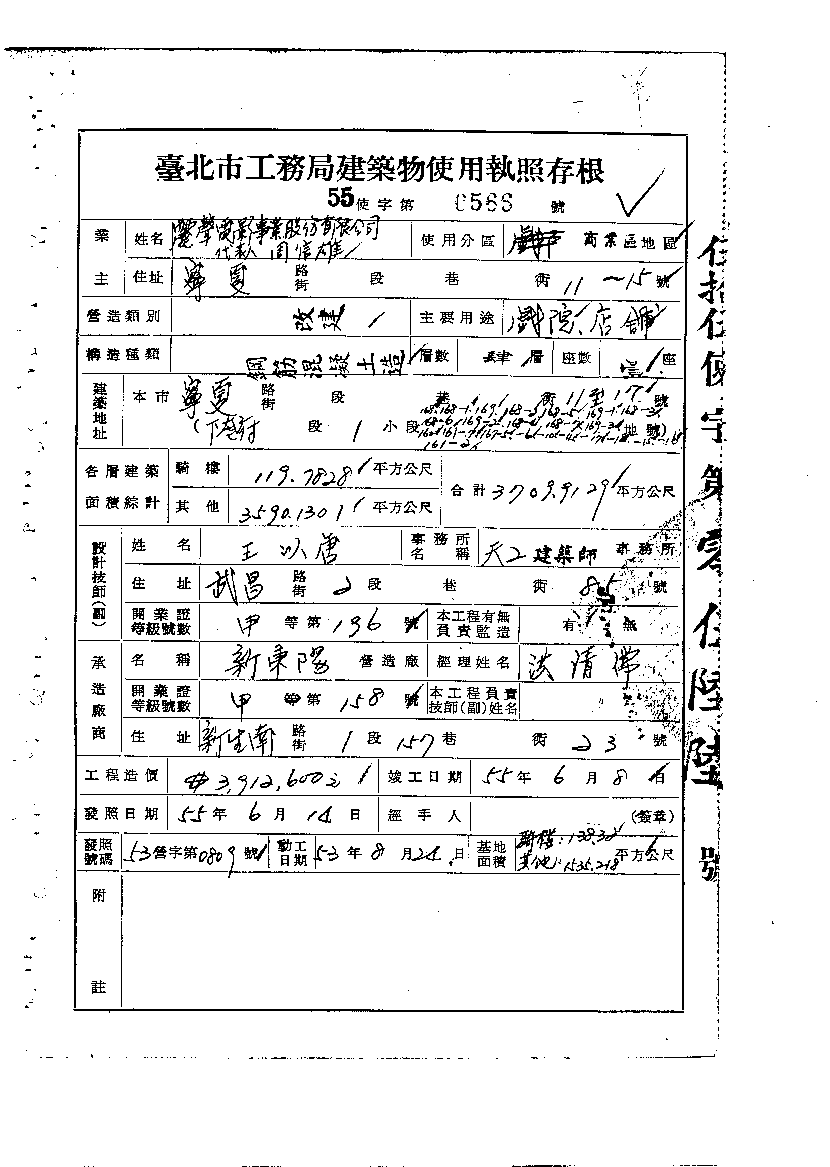 臺北市工務局建築物使用執照存根
55使字第 0566 號
業主 姓名 聲電影事業股份有限公司 代表人 周信雄 使用分區 商業區地區
住址 寧夏 路街 段 巷 衖 11~15 號
營造類別 改建 主要用途 戲院、店舖
構造種類 鋼筋混凝土造 層數 肆層 座數 壹座
建築地址 本市 寧夏 路街 段 巷 衖 11至17 號
段 1 小段 地號)
各層建築面積綜計 騎樓 119.7828 平方公尺 合計 3709.9129 平方公尺
其他 3590.1301 平方公尺
設計技師(副) 姓名 王以唐 事務所名稱 天工建築師 事務所
住址 武昌 路街 2 段 巷 衖 85 號
開業證等級號數 甲 等第 196 號 本工程有無負責監造 有 無
承造廠商 名稱 新東陽 營造廠 經理姓名 洪清
開業證等級號數 甲 等第 158 號 本工程負責技師(副)姓名
住址 新生南 路街 1 段 157 巷 衖 23 號
工程造價 3,912,600元 竣工日期 55年 6月 8日
發照日期 55年 6月 14日 經手人 (簽章)
發照號碼 53營字第0809號 動工日期 53年 8月 24日 基地面積 騎樓:138.32 其他:1535.218 平方公尺
附註
伍拾伍使字第零伍陸陸號